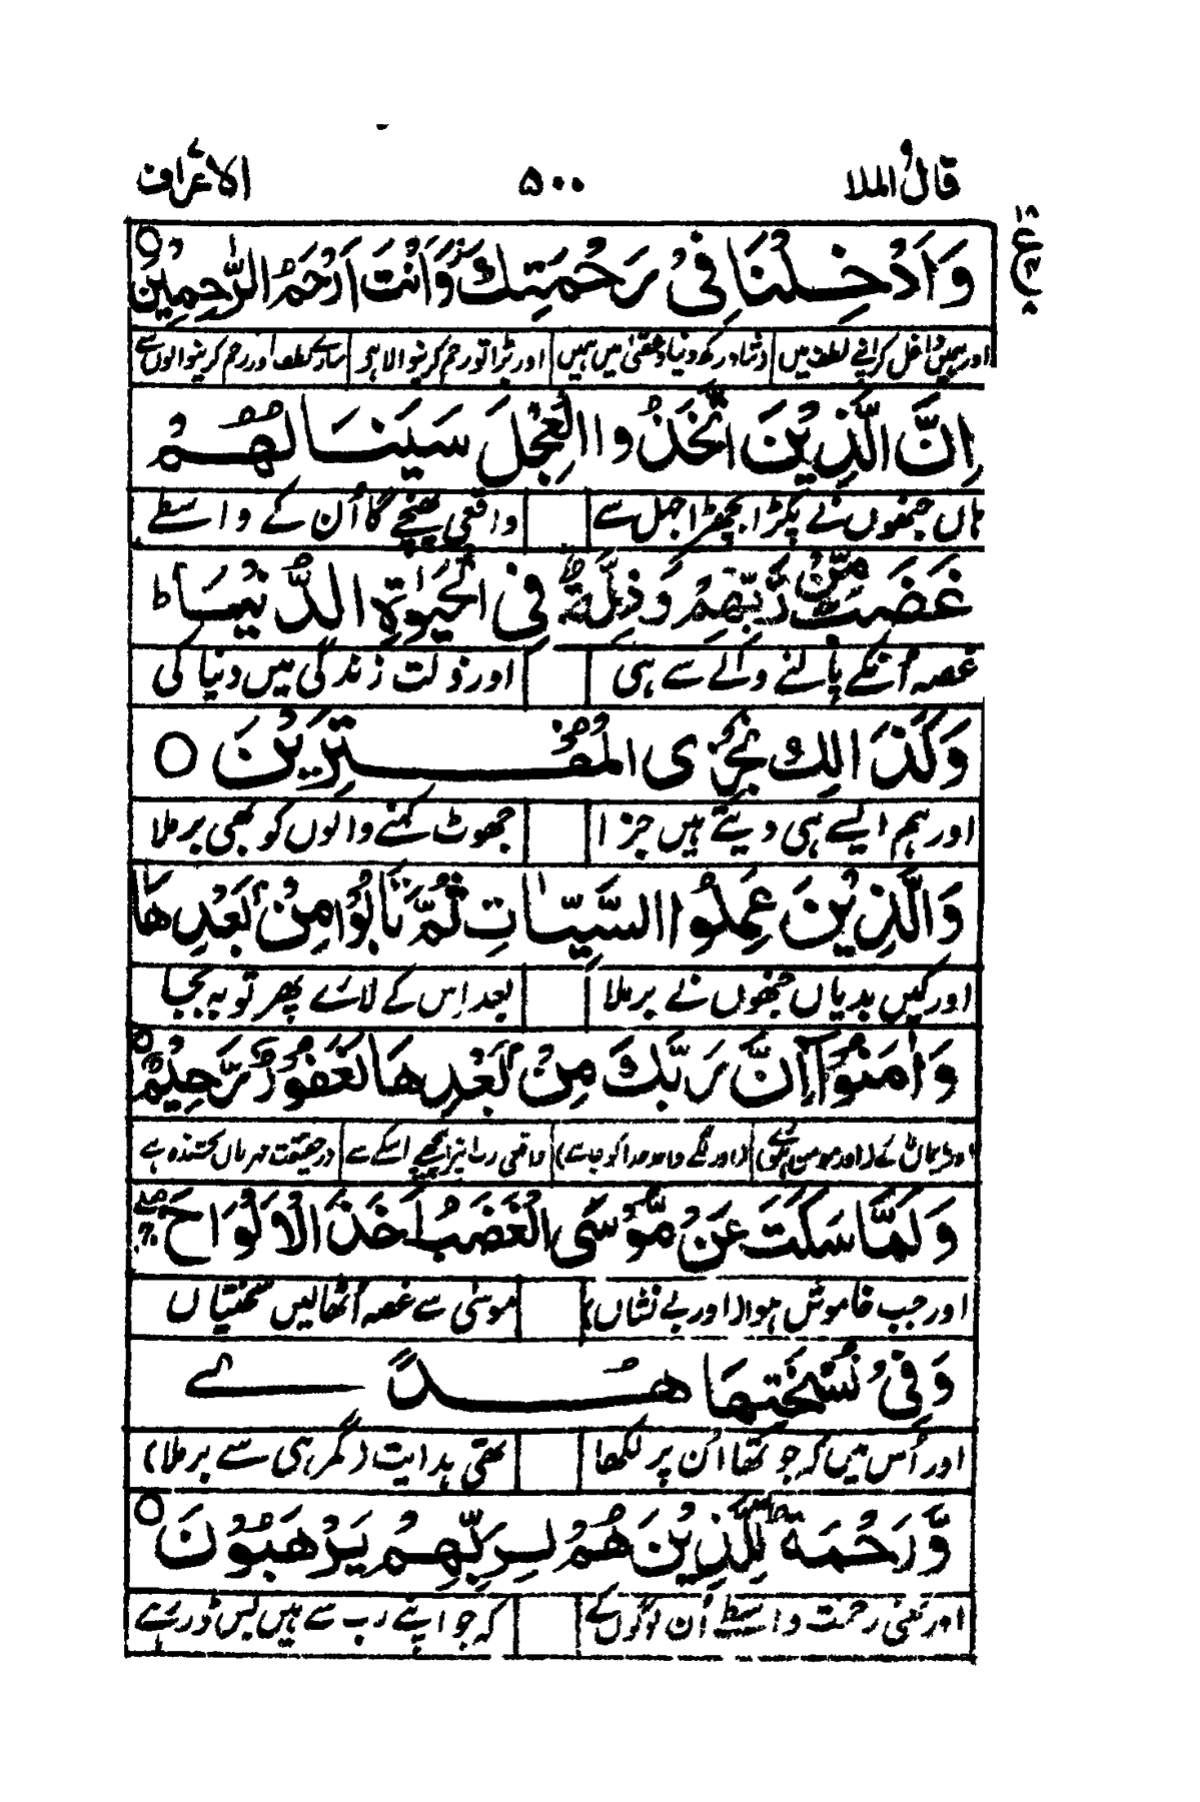 قال الملا ۵۰۰ الاعراف
وَاَدْخِلْنَا فِیْ رَحْمَتِكَ وَاَنْتَ اَرْحَمُ الرّٰحِمِیْنَ
اور ہمیں داخل کر اپنے لطف میں اور بڑا تو رحم کرنیوالا ہو
اِنَّ الَّذِیْنَ اتَّخَذُوا الْعِجْلَ سَیَنَالُهُمْ
ہاں جنھوں نے پکڑا بچھڑا جہل سے واقعی پہنچے گا اُن کے واسطے
غَضَبٌ مِّنْ رَّبِّهِمْ وَذِلَّةٌ فِی الْحَیٰوةِ الدُّنْیَا ط
غصہ اُنکے پالنے والے سے ہی اور ذلت زندگی میں دنیا کی
وَكَذٰلِكَ نَجْزِی الْمُفْتَرِیْنَ
اور ہم ایسے ہی دیتے ہیں جزا جھوٹ کہنے والوں کو بھی برملا
وَالَّذِیْنَ عَمِلُوا السَّیِّاٰتِ ثُمَّ تَابُوْا مِنْۢ بَعْدِهَا
اور کیں بدیاں جنھوں نے برملا بعد اِس کے لائے پھر توبہ بجا
وَاٰمَنُوْۤا اِنَّ رَبَّكَ مِنْۢ بَعْدِهَا لَغَفُوْرٌ رَّحِیْمٌ
درحقیقت مہرباں بخشندہ ہے
وَلَمَّا سَكَتَ عَنْ مُّوْسَی الْغَضَبُ اَخَذَ الْاَلْوَاحَ
اور جب خاموش ہوا (اور بے نشاں) موسیٰ سے غصہ اُٹھا لیں تختیاں
وَفِیْ نُسْخَتِهَا هُدًی
اور اُس میں کہ جو تھا اُن پر لکھا تھی ہدایت (گمرہی سے برملا)
وَّرَحْمَةٌ لِّلَّذِیْنَ هُمْ لِرَبِّهِمْ یَرْهَبُوْنَ
اور تھی رحمت واسطے اُن لوگوں کے کہ جو اپنے رب سے ہیں بس ڈر رہے